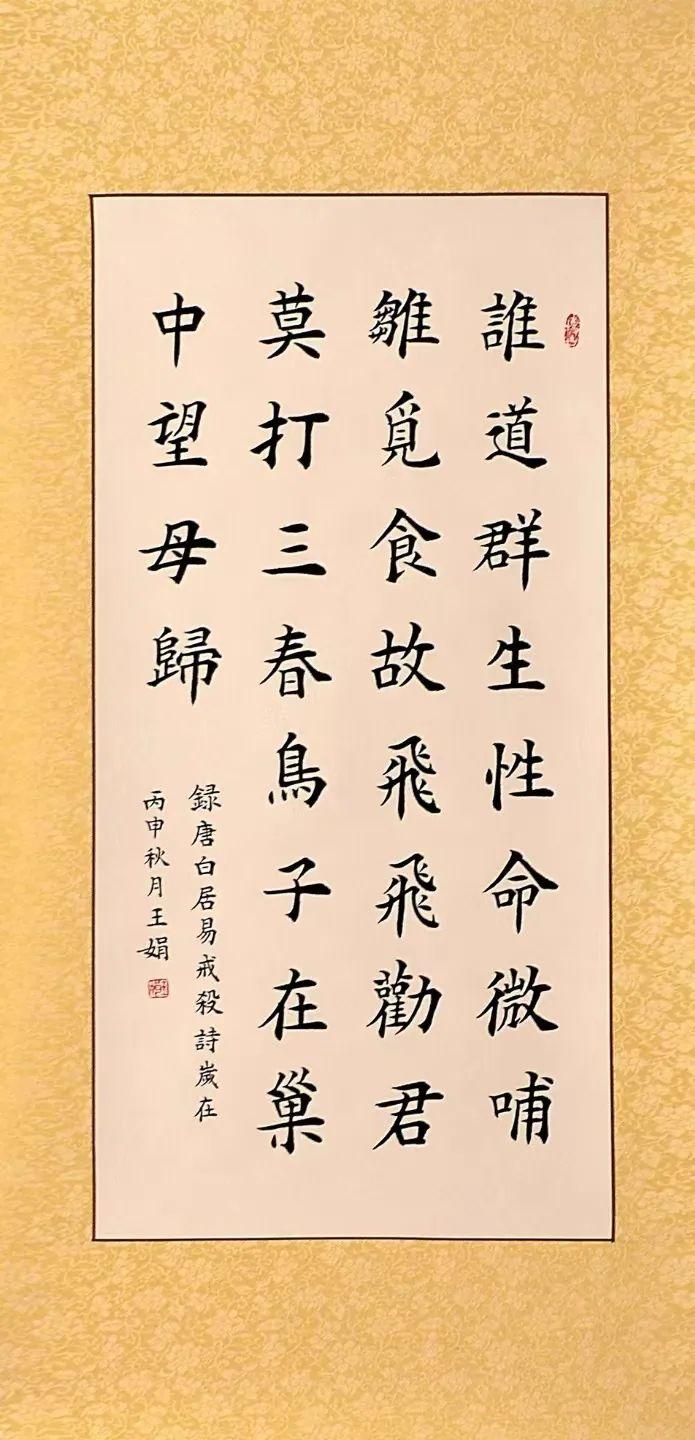 誰道群生性命微哺
雛覓食故飛飛勸君
莫打三春鳥子在巢
中望母歸
録唐白居易戒殺詩嵗在
丙申秋月王娟